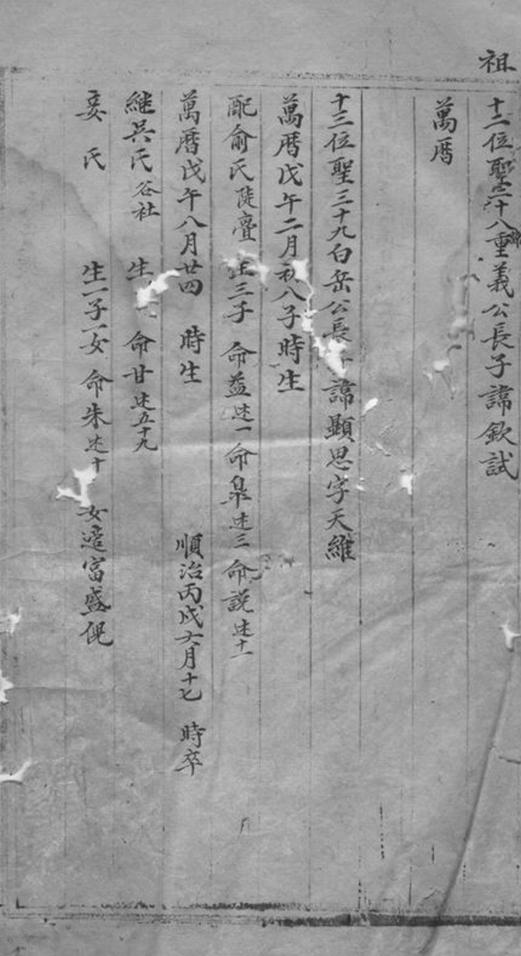 祖
十二位聖三十八重義公長子諱欽試
萬暦
十三位聖三十九白岳公長 諱顯思字天維
萬暦戊午二月初八子時生
配俞氏陡亹 生三子 命益述一命臯述三命説述十一
萬暦戊午八月廿四 時生 順治丙戌六月十七 時卒
継吳氏谷社 生 命甘述五十九
妾氏 生一子一女 命朱述十 女適富盛倪